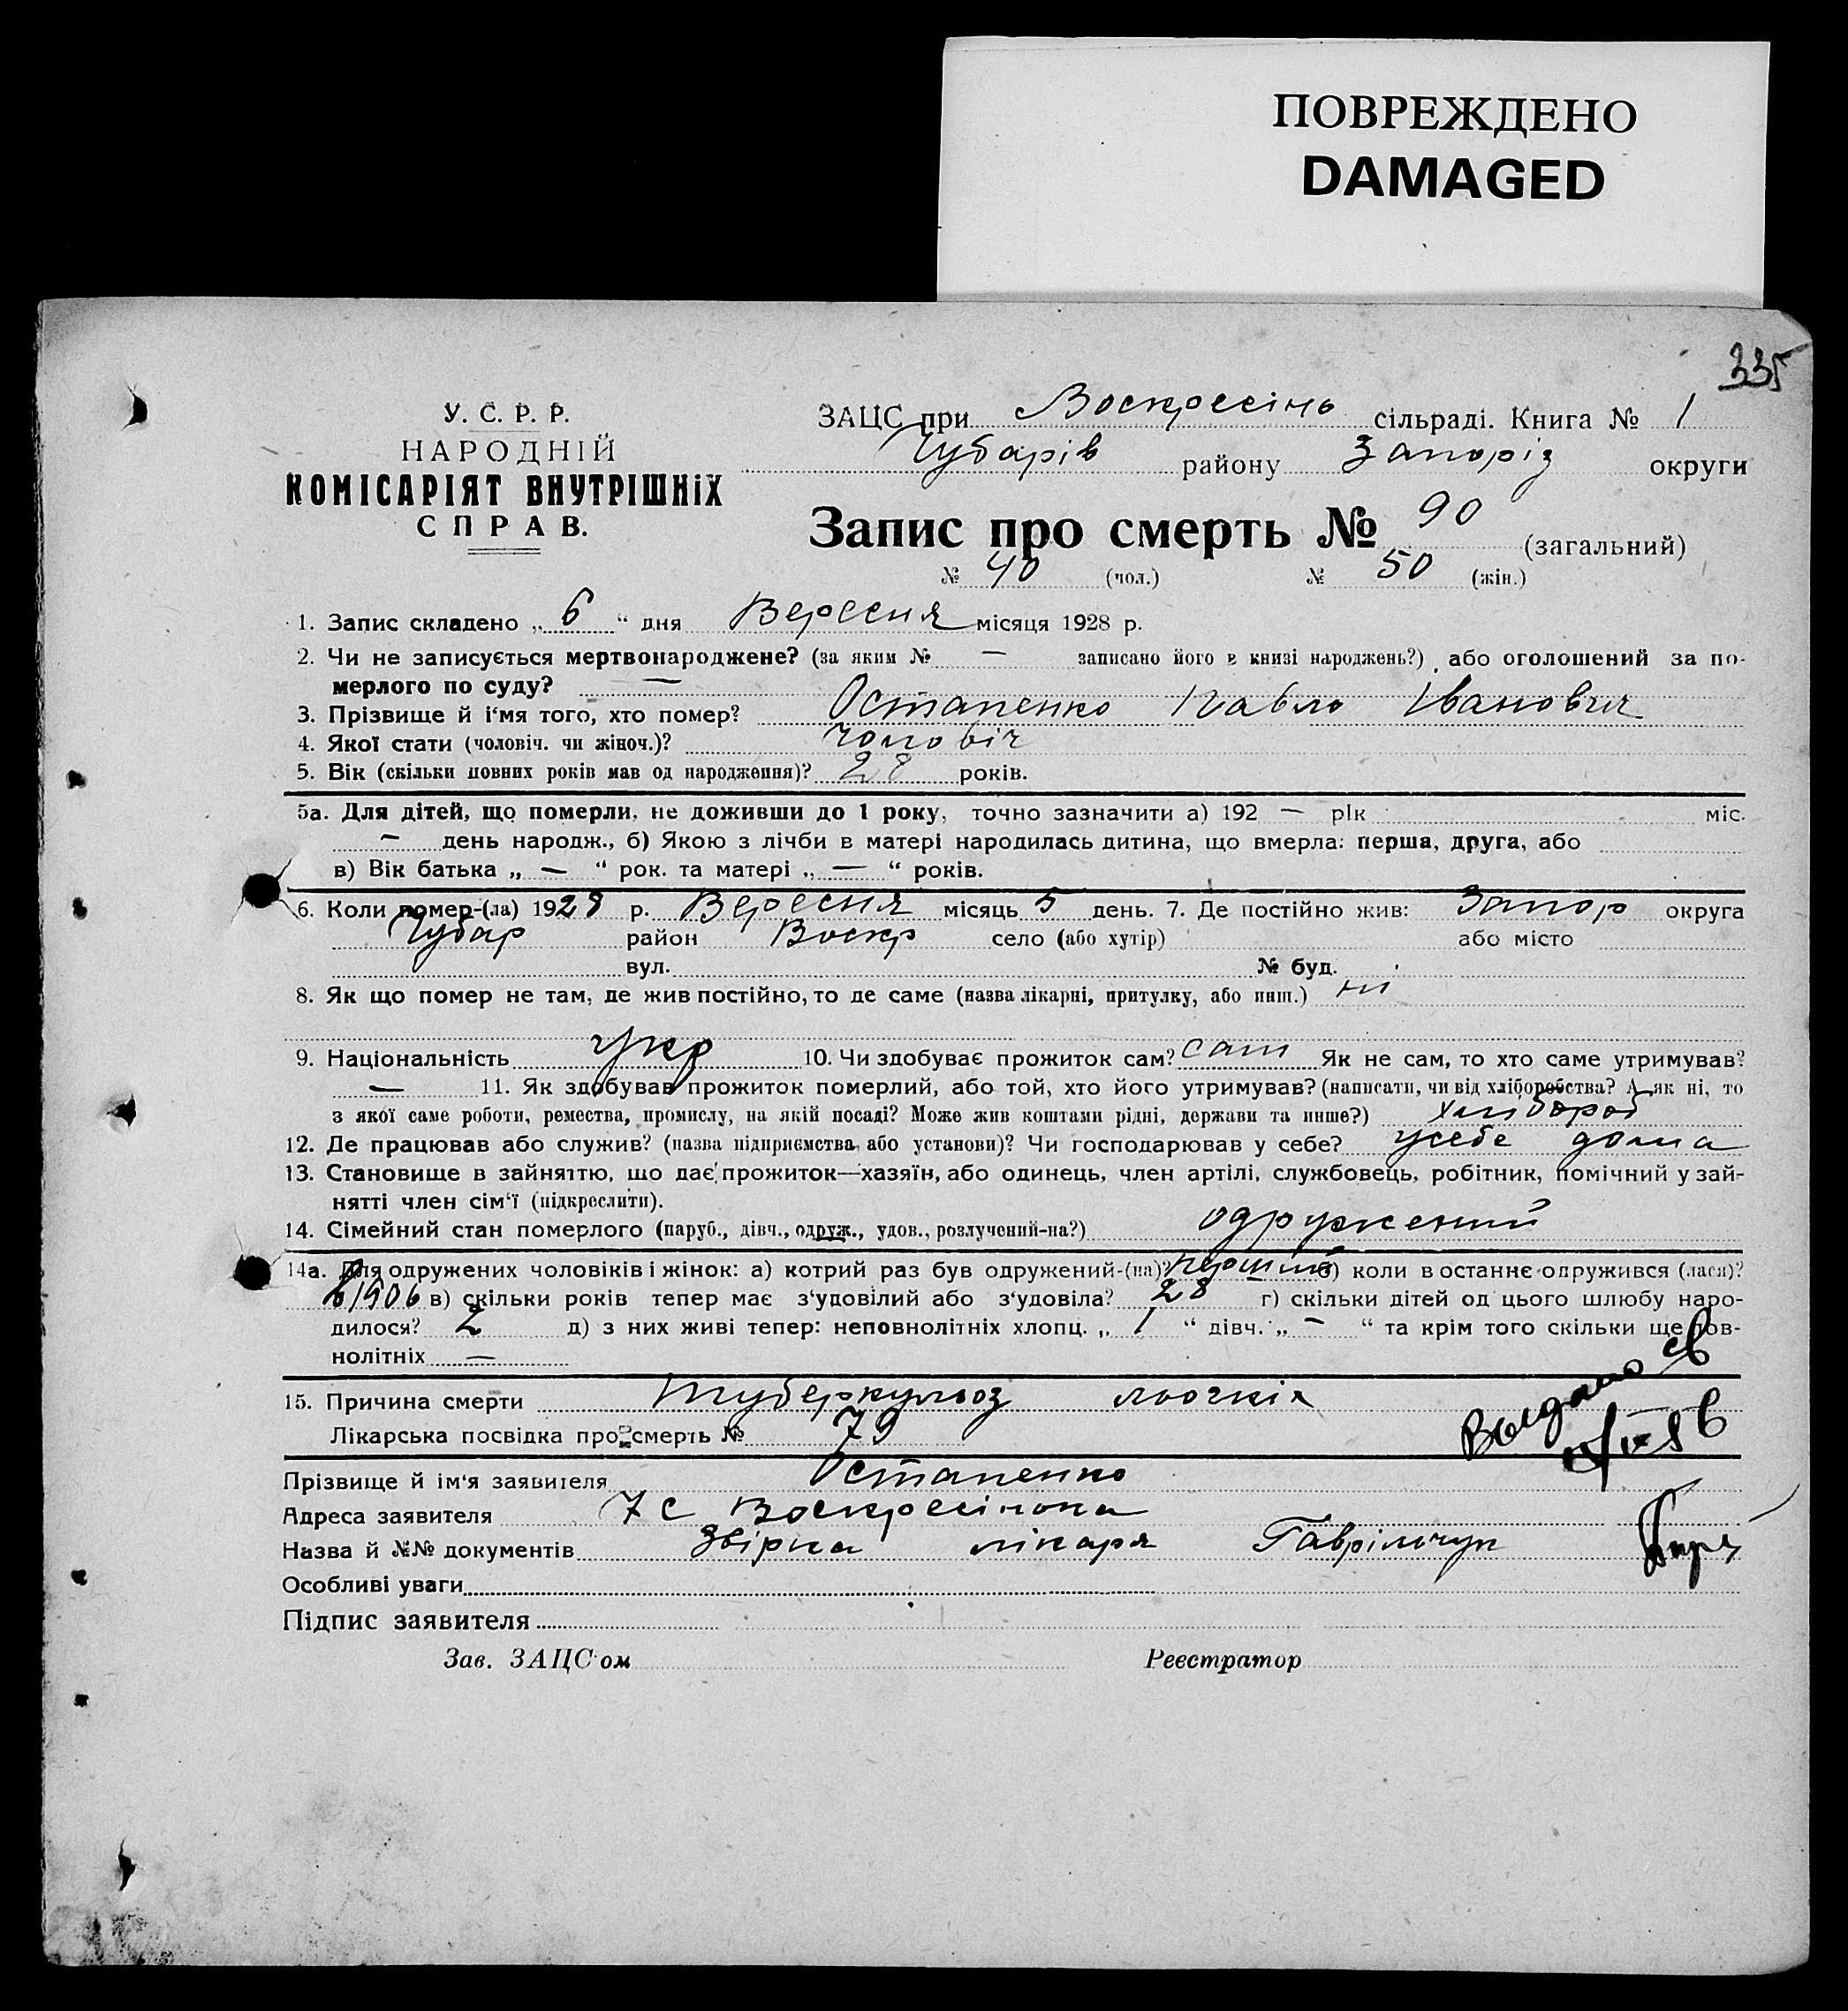 ПОВРЕЖДЕНО
DAMAGED
335
У. С. Р. Р.
НАРОДНІЙ
КОМІСАРІЯТ ВНУТРІШНІХ
СПРАВ.
ЗАЦС при Воскресінь сільраді. Книга № 1
Чубарів району Запоріз округи
Запис про смерть № 90 (загальний)
№ 40 (чол.) № 50 (жін.)
1. Запис складено „ 6 “ дня Вересня місяця 1928 р.
2. Чи не записується мертвонароджене? (за яким № — записано його в книзі народжень?), або оголошений за по-
мерлого по суду? —
3. Прізвище й і'мя того, хто помер? Остапенко Павло Іванович
4. Якої стати (чоловіч. чи жіноч.)? чоловіч
5. Вік (скільки повних років мав од народження)? 28 років.
5а. Для дітей, що померли, не доживши до 1 року, точно зазначити а) 192 — рік міс.
— день народж., б) Якою з лічби в матері народилась дитина, що вмерла: перша, друга, або
в) Вік батька „ — “ рок. та матері „ — “ років.
6. Коли помер-(ла) 1928 р. Вересня місяць 5 день. 7. Де постійно жив: Запор округа
Чубар район Воскр село (або хутір) або місто
вул. № буд.
8. Як що помер не там, де жив постійно, то де саме (назва лікарні, притулку, або инш.) ні
9. Національність Укр 10. Чи здобуває прожиток сам? сам Як не сам, то хто саме утримував?
— 11. Як здобував прожиток померлий, або той, хто його утримував? (написати, чи від хліборобства? А як ні, то
з якої саме роботи, ремества, промислу, на якій посаді? Може жив коштами рідні, держави та инше?) хлібороб
12. Де працював або служив? (назва підприємства або установи)? Чи господарював у себе? усебе дома
13. Становище в зайняттю, що дає прожиток—хазяїн, або одинець, член артілі, службовець, робітник, помічний у зай-
нятті член сім'ї (підкреслити).
14. Сімейний стан померлого (паруб., дівч., одруж., удов., розлучений-на?) одружений
14а. Для одружених чоловіків і жінок: а) котрий раз був одружений-(на)? перший б) коли в останнє одружився (лася)?
в 1906 в) скільки років тепер має з'удовілий або з'удовіла? 28 г) скільки дітей од цього шлюбу наро-
дилося? 2 д) з них живі тепер: неповнолітніх хлопц. „ 1 “ дівч. „ — “ та крім того скільки ще пов-
нолітніх —
15. Причина смерти туберкульоз
Лікарська посвідка про смерть № 79
Прізвище й ім'я заявителя Остапенко
Адреса заявителя с Воскресінока
Назва й №№ документів лікаря Гаврільчук
Особливі уваги
Підпис заявителя
Зав. ЗАЦС'ом Реєстратор